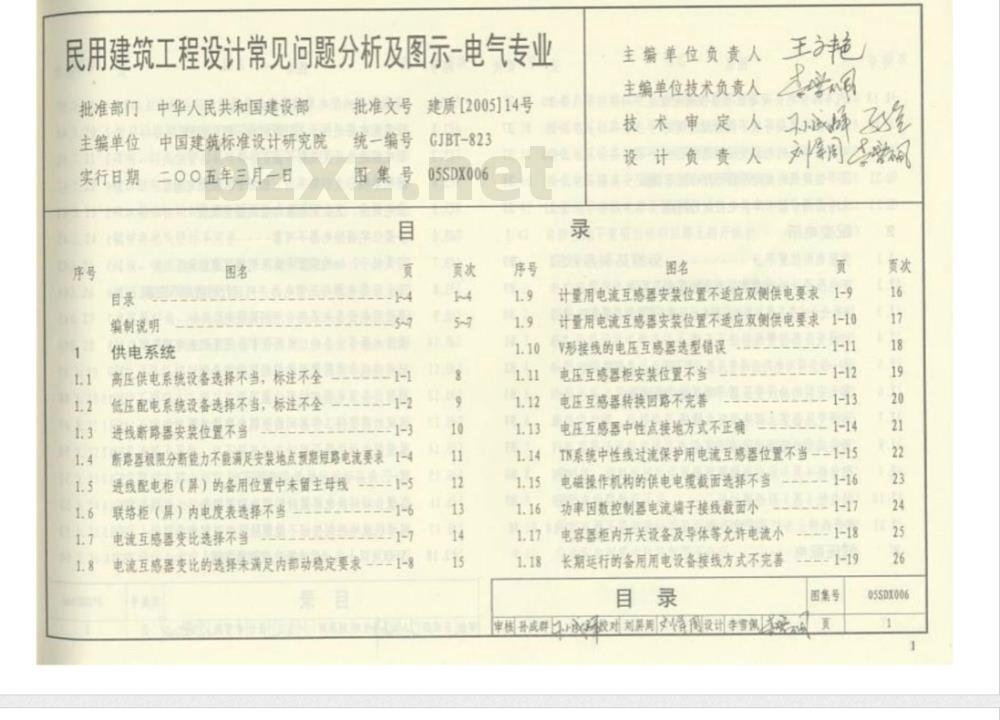 民用建筑工程设计常见问题分析及图示-电气专业
批准部门 中华人民共和国建设部 批准文号 建质[2005]14号
主编单位 中国建筑标准设计研究院 统一编号 GJBT-823
实行日期 二〇〇五年三月一日 图集号 05SDX006
主编单位负责人
主编单位技术负责人
技术审定人
设计负责人
bzxz.net
目录
序号 图名 页 页次
目录 1-4 1-4
编制说明 5-7 5-7
1 供电系统
1.1 高压供电系统设备选择不当，标注不全 1-1 8
1.2 低压配电系统设备选择不当，标注不全 1-2 9
1.3 进线断路器安装位置不当 1-3 10
1.4 断路器极限分断能力不能满足安装地点预期短路电流要求 1-4 11
1.5 进线配电柜（屏）的备用位置中未留主母线 1-5 12
1.6 联络柜（屏）内电度表选择不当 1-6 13
1.7 电流互感器变比选择不当 1-7 14
1.8 电流互感器变比的选择未满足内部动稳定要求 1-8 15
序号 图名 页 页次
1.9 计量用电流互感器安装位置不适应双侧供电要求 1-9 16
1.9 计量用电流互感器安装位置不适应双侧供电要求 1-10 17
1.10 V形接线的电压互感器选型错误 1-11 18
1.11 电压互感器柜安装位置不当 1-12 19
1.12 电压互感器转换回路不完善 1-13 20
1.13 电压互感器中性点接地方式不正确 1-14 21
1.14 TN系统中性线过流保护用电流互感器位置不当 1-15 22
1.15 电磁操作机构的供电电缆截面选择不当 1-16 23
1.16 功率因数控制器电流端子接线截面小 1-17 24
1.17 电容器柜内开关设备及导体等允许电流小 1-18 25
1.18 长期运行的备用用电设备接线方式不完善 1-19 26
目录 图集号 05SDX006
审核 孙成群 校对 刘屏周 设计 李雪佩 页 1
1